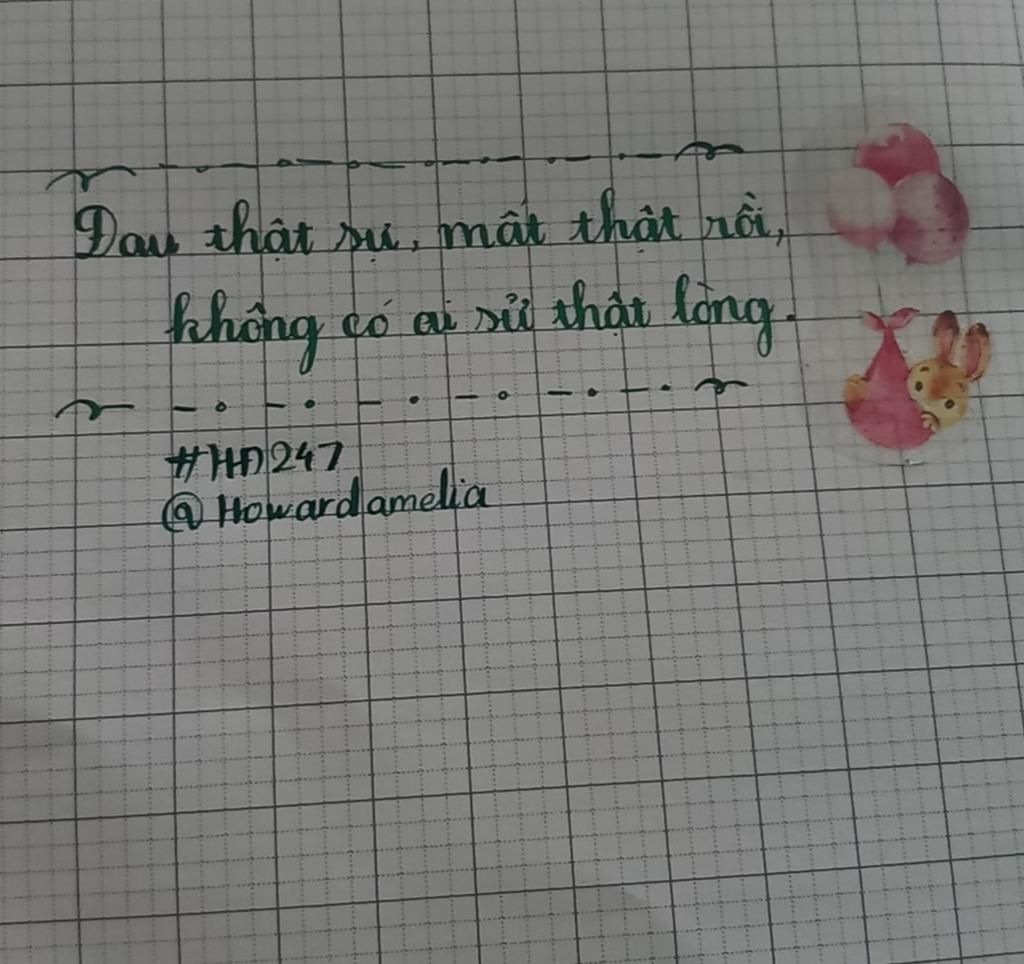 Đau thật sự, mất thật rồi,
không có ai sử thật lòng.
#HD247
@Howardamelia